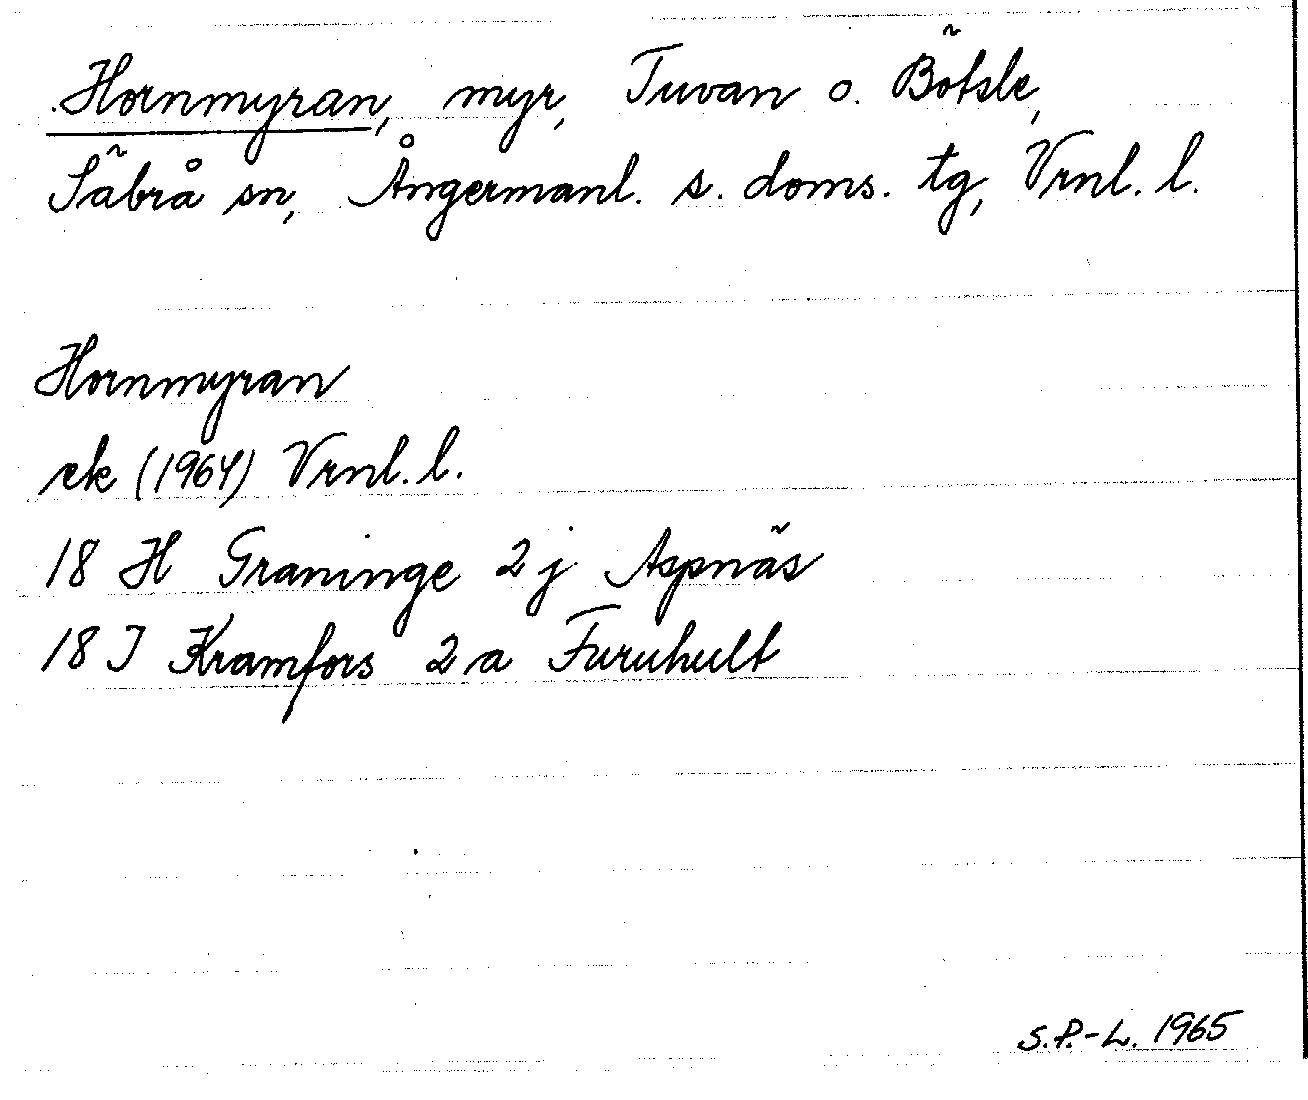 Hornmyran, myr, Tuvan o. Bötsle,
Säbrå sn, Ångermanl. s. doms. tg, Vrnl. l.
Hornmyran
ek (1964) Vrnl. l.
18 H Graninge 2 j Aspnäs
18 I Kramfors 2 a Furuhult
S.P.-L. 1965